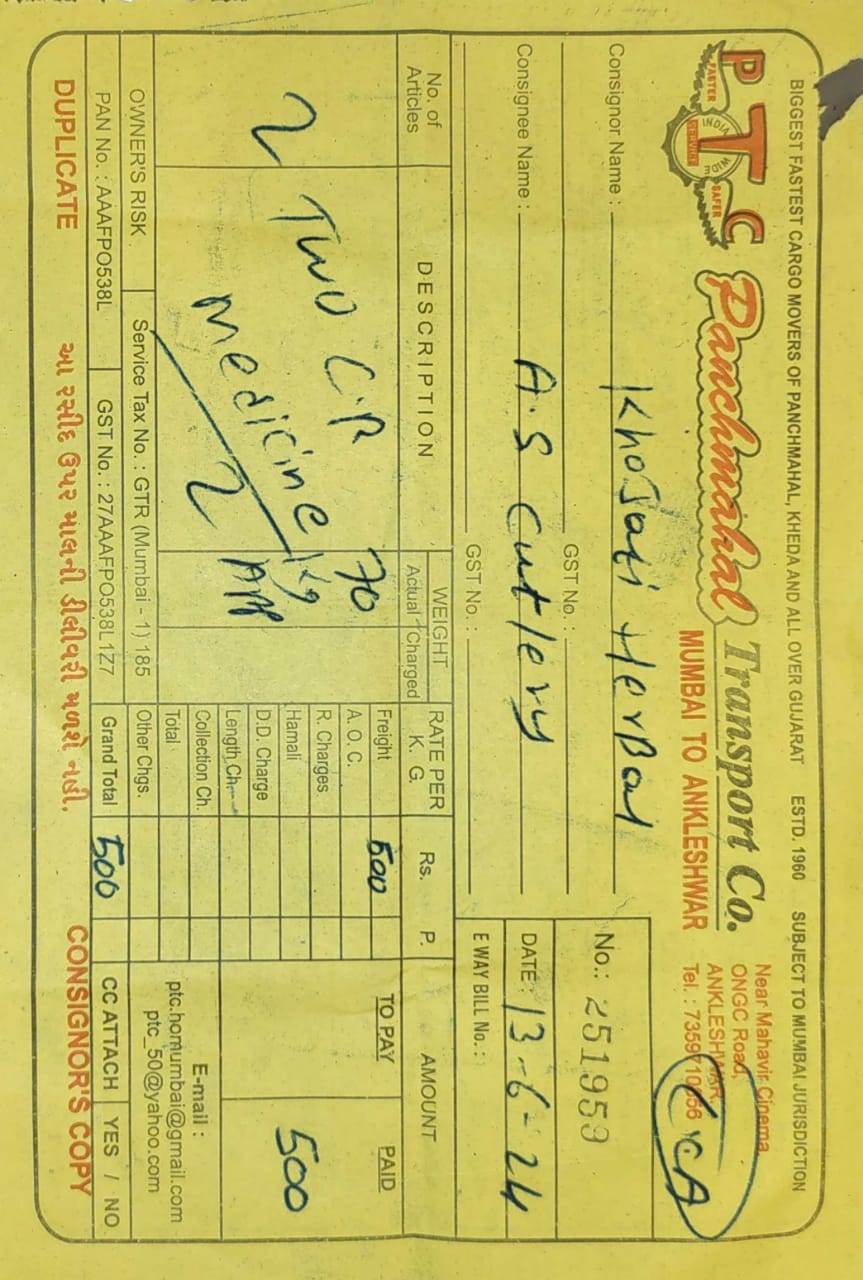 BIGGEST FASTEST CARGO MOVERS OF PANCHMAHAL, KHEDA AND ALL OVER GUJARAT ESTD. 1960 SUBJECT TO MUMBAI JURISDICTION
PTC
FASTER INDIA WIDE SAFER
SERVICE
Panchmahal Transport Co.
MUMBAI TO ANKLESHWAR
Near Mahavir Cinema,
ONGC Road,
ANKLESHWAR.
Tel. : 7359710656
CCA
Consignor Name : Khojati Herbal
GST No. :
Consignee Name : A.S Cutlery
GST No. :
No.: 251959
DATE : 13-6-24
E WAY BILL No. :
No. of Articles DESCRIPTION WEIGHT Actual Charged RATE PER K. G. Rs. P. AMOUNT
2 TWO C.P 70 kg
Medicine APP
2
Freight 500
A. O. C.
R. Charges
Hamali
D.D. Charge
Length Ch.
Collection Ch.
Total
Other Chgs.
Grand Total 500
TO PAY PAID
500
E-mail :
ptc.homumbai@gmail.com
ptc_50@yahoo.com
OWNER'S RISK Service Tax No. : GTR (Mumbai - 1) 185
PAN No. : AAAFPO538L GST No. : 27AAAFPO538L1Z7
CC ATTACH YES / NO
DUPLICATE આ રસીદ ઉપર માલની ડીલીવરી મળશે નહી. CONSIGNOR'S COPY